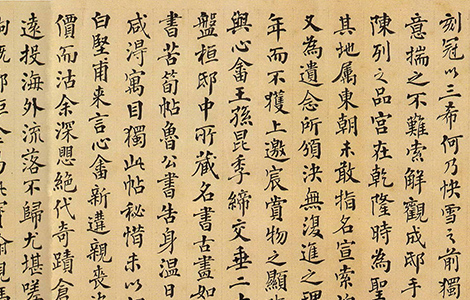 刻冠以三希何乃快雪之前獨
意揣之不難索解觀成邸手
陳列之品宮在乾隆時為聖
其地属東朝未敢指名宣索
又為遺念所頒決無復進之理
年而不獲上邀宸賞物之顯
與心畬王孫昆季締交垂二
盤桓邸中所藏名書古畫如
書苦筍帖魯公書告身溫日
咸得寓目獨此帖秘惜未以
白堅甫来言心畬新遘親喪
價而沽余深愳絕代奇蹟倉
遠投海外流落不歸尤堪嗟